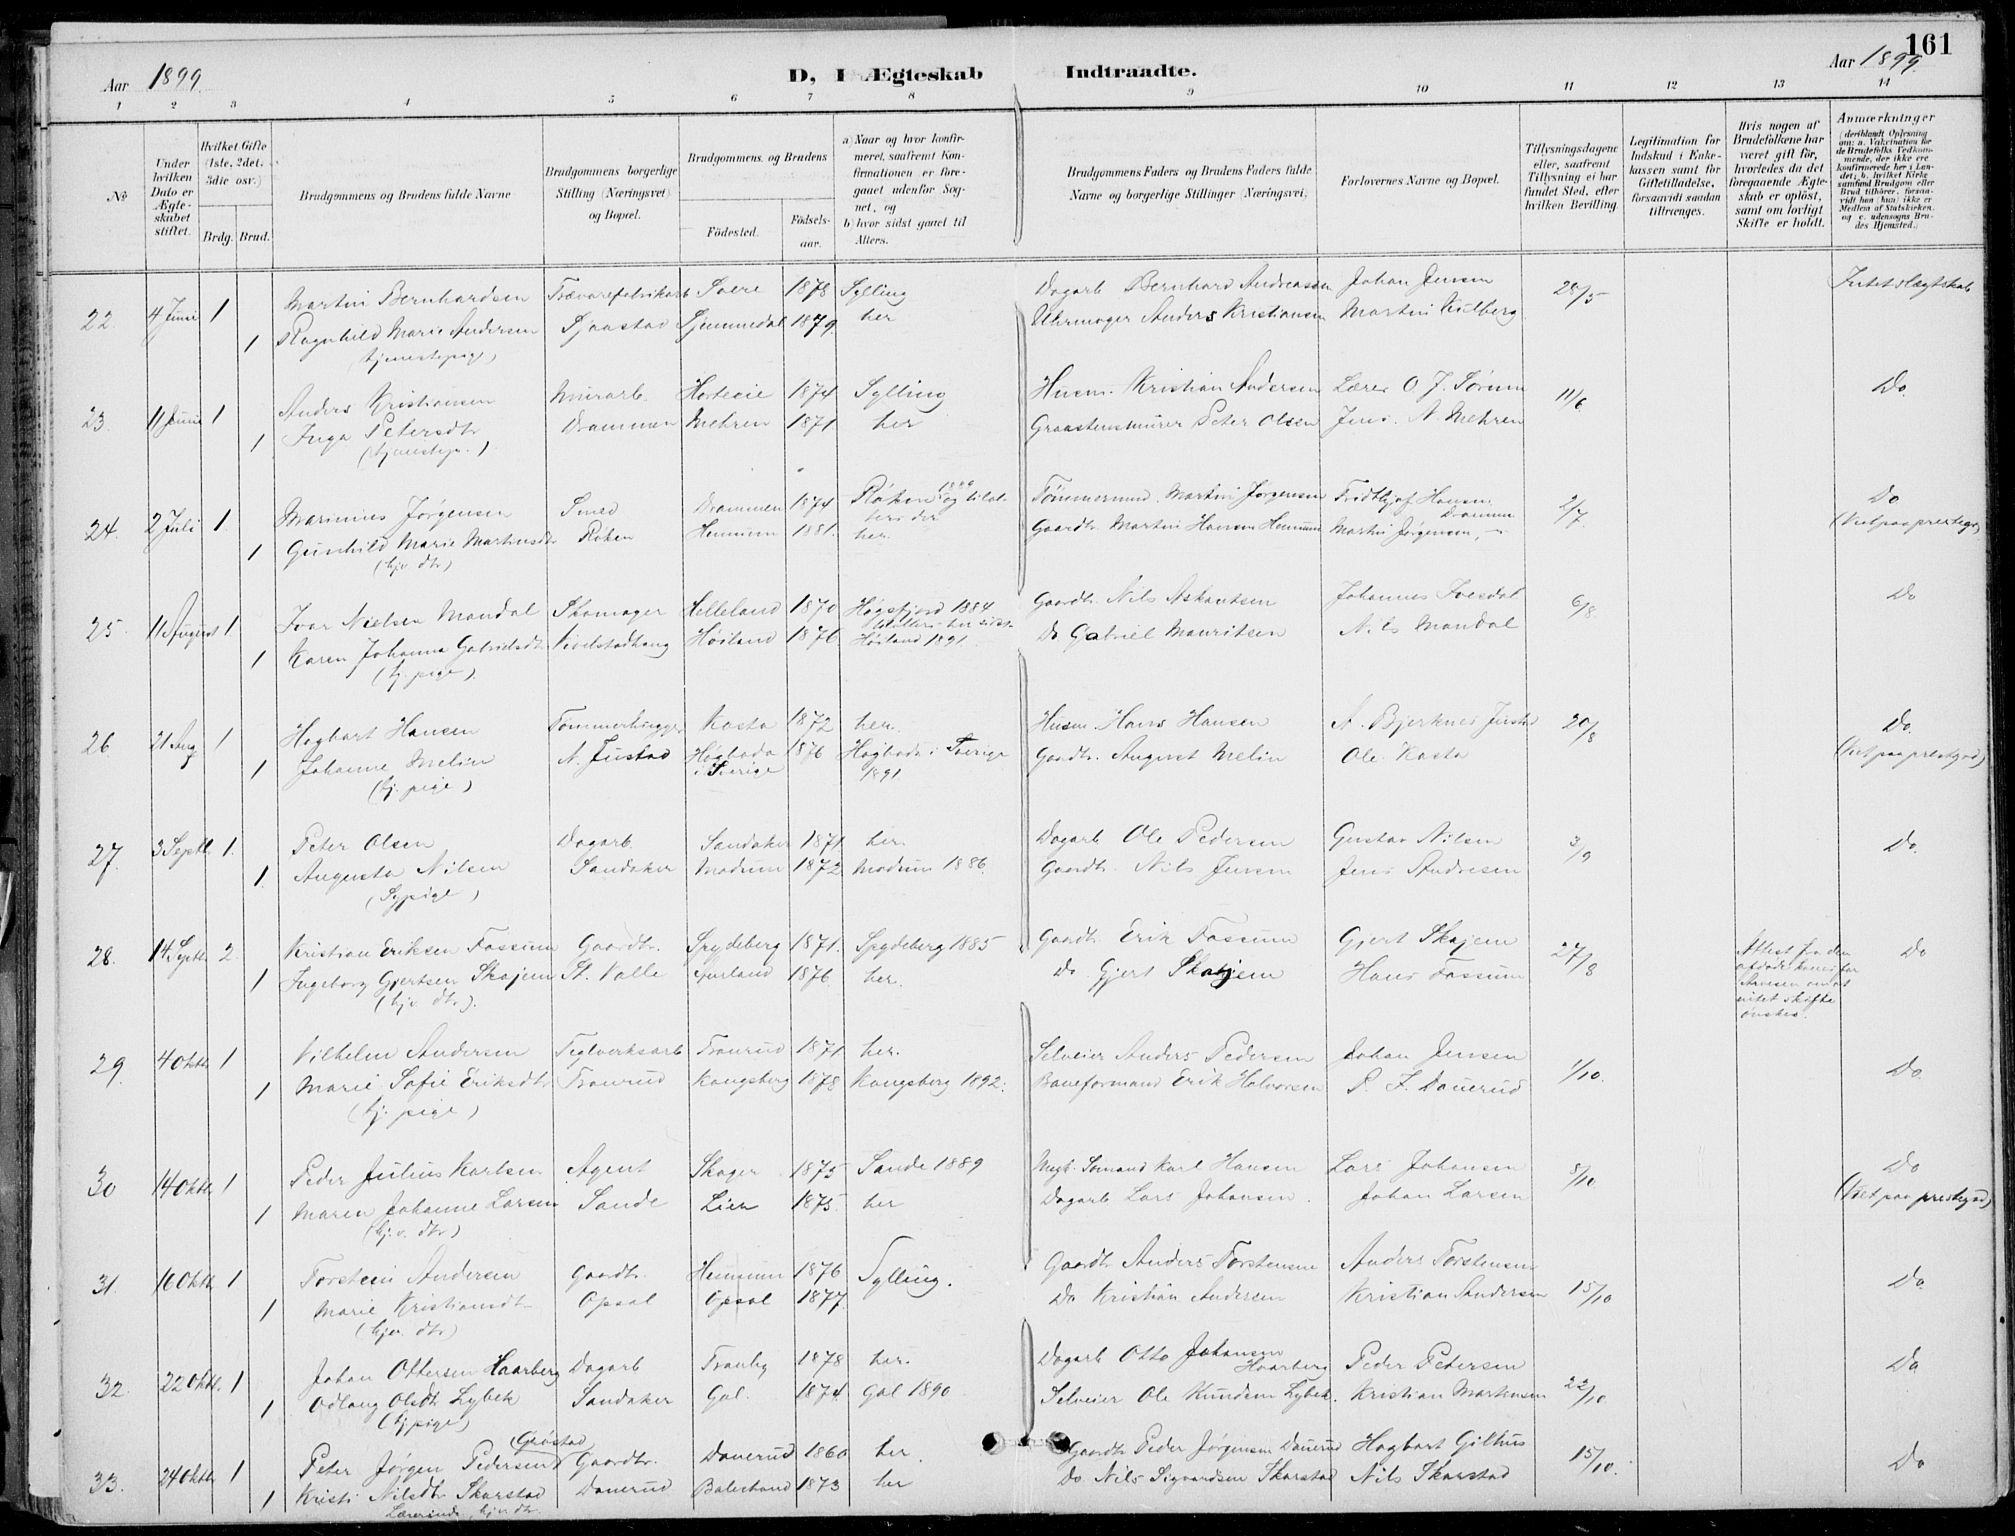 161
Aar 1899.
D, I Ægteskab Indtraadte.
Aar 1899.
1 2 3 4 5 6 7 8 9 10 11 12 13 14
No.
Under hvilken Dato er Ægteskabet stiftet.
Hvilket Gifte (1ste, 2det, 3die osv.)
Brdg. Brud.
Brudgommens og Brudens fulde Navne
Brudgommens borgerlige Stilling (Næringsvei) og Bopæl.
Brudgommens og Brudens
Födested.
Födselsaar.
a) Naar og hvor konfirmeret, saafremt Konfirmationen er foregaaet udenfor Sognet, og
b) hvor sidst gaaet til Alters.
Brudgommens Faders og Brudens Faders fulde Navne og borgerlige Stillinger (Næringsvei)
Forlovernes Navne og Bopæl.
Tillysningsdagene eller, saafremt Tillysning ei har fundet Sted, efter hvilken Bevilling.
Legitimation for Indskud i Enkekassen samt for Giftetilladelse, forsaavidt saadan tiltrænges.
Hvis nogen af Brudefolkene har været gift för, hvorledes da det foregaaende Ægteskab er oplöst, samt om lovligt Skifte er holdt.
Anmærkninger
(deriblandt Oplysning om: a. Vakcination for de Brudefolks Vedkommende, der ikke ere konfirmerede her i Landet; b. hvilket Kirkesamfund Brudgom eller Brud tilhörer, forsaavidt han (hun) ikke er Medlem af Statskirken, og c. udensogns Brudes Hjemsted.)
22 4 Juni 1 Martin Bernhardsen Trævarefabrikarb 1878 Sylling Dagarb Bernhard Andreassen Johan Jensen 28/5 Intet slægtskab
1 Ragnhild Marie Andersen Sjaastad 1879. her Uhrmager Anders Kristiansen Martin
(tjenestepige)
23. 11 Juni 1 Anders Kristiansen Murarb. 1874 Sylling Husm. Kristian Andersen Lærer O. J. Sørum 11/6 Do.
1 Inga Petersdtr Drammen Mehren 1871 her Graastensmurer Peter Olsen Jens. N. Mehren
(tjenestep.)
24. 2 Juli 1. Marinius Jørgensen Smed Drammen 1874 Røken Tømmermand Martin Jørgensen Fridthjof Hansen, Drammen 2/7 Do
1 Gunhild Marie Martinsdtr Røken Hennum 1881. her. Gaardbr. Martin Hansen Hennum Martin Jørgensen, - (Viet paa prestegd)
(hjv. dtr)
25. 11 August 1 Ivar Nielsen Mandal Skomager Helleland 1870 Høgsfjord 1884 Gaardbr. Nils Johannes 6/8. Do
1 Karen Johanna Gabrielsdtr Høiland 1876 Høiland 1891. Do Gabriel Mauritsen Nils Mandal
(tj. pige)
26 21 Aug 1 Hagbart Hansen Tømmerhugger Kasta 1872 her. Husm. Hans Hansen A. Bjerknes 20/8 Do.
1 Johanne Melin N. Justad Høgboda i Sverige 1876 Høgboda i Sverige 1891 Gaardbr. August Melin Ole Kasta (Viet paa prestegd)
(tj. pige)
27. 3 Septbr 1. Peter Olsen Dagarb. Sandaker 1871. her. Dagarb Ole Pedersen Gustav Nilsen 3/9 Do.
1. Augusta Nilsen Sandaker Modum 1872 Modum 1886. Gaardbr. Nils Jensen Jens Andresen
(Sypige)
28. 14 Septbr. 2. Kristian Eriksen Fossum Gaardbr. Spydeberg 1871. Spydeberg 1885 Gaardbr. Erik Fossum Gjert Skajem 27/8 Attest fra den afdøde kones far om at intet skifte ønskes. Do
1 Ingeborg Gjertsen Skajem St. Valle 1876 her. Do Gjert Skajem Hans Fossum
(hjv. dtr).
29. 4 Oktbr 1 Vilhelm Andersen Teglverksarb Tranrud 1871. her. Selveier Anders Pedersen Johan Jensen 1/10. Do.
1 Marie Sofie Eriksdtr Tranrud Kongsberg 1878 Kongsberg 1892. Baneformand Erik Halvorsen P. J. Dauerud
(tj. pige)
30 14 Oktbr 1 Peder Julius Karlsen Agent Skoger 1875 Sande 1889 Karl Hansen Lars Johansen 8/10 Do
1 Maren Johanne Larsen Sande Lier 1875. her Dagarb Lars Johansen. Johan Larsen (Viet paa prestegd)
(hj.v. dtr)
31. 16 Oktbr 1 Torstein Andersen Gaardbr. Hennum 1876 Sylling. Gaardbr Anders Torstensen Anders Torstensen 15/10 Do.
1 Marie Kristiansdtr Opsal Opsal 1877. Do Kristian Andersen Kristian Andersen
(hjv. dtr)
32. 22 Oktbr. 1 Johan Ottersen Haarberg Dagarb Tranby 1878 her. Dagarb Otto Johansen Haarberg Peder Petersen 22/10 Do
1 Odlaug Olsdtr Lybek Sandaker Gol. 1874. Gol 1890. Selveier Ole Knudsen Lybek. Kristian Martinsen
(tj. pige)
33. 24 Oktbr 1 Peter Jørgen Pedersen (Grøstad) Gaardbr. Dauerud 1860 her. Gaardbr Peder Jørgensen Dauerud Hagbart Gilhus 15/10. Do
1 Kristi Nilsdtr Skarstad Dauerud Balestrand 1873 her Do Nils Sigvardsen Skarstad Nils Skarstad
Lærerinde, hjv dtr.